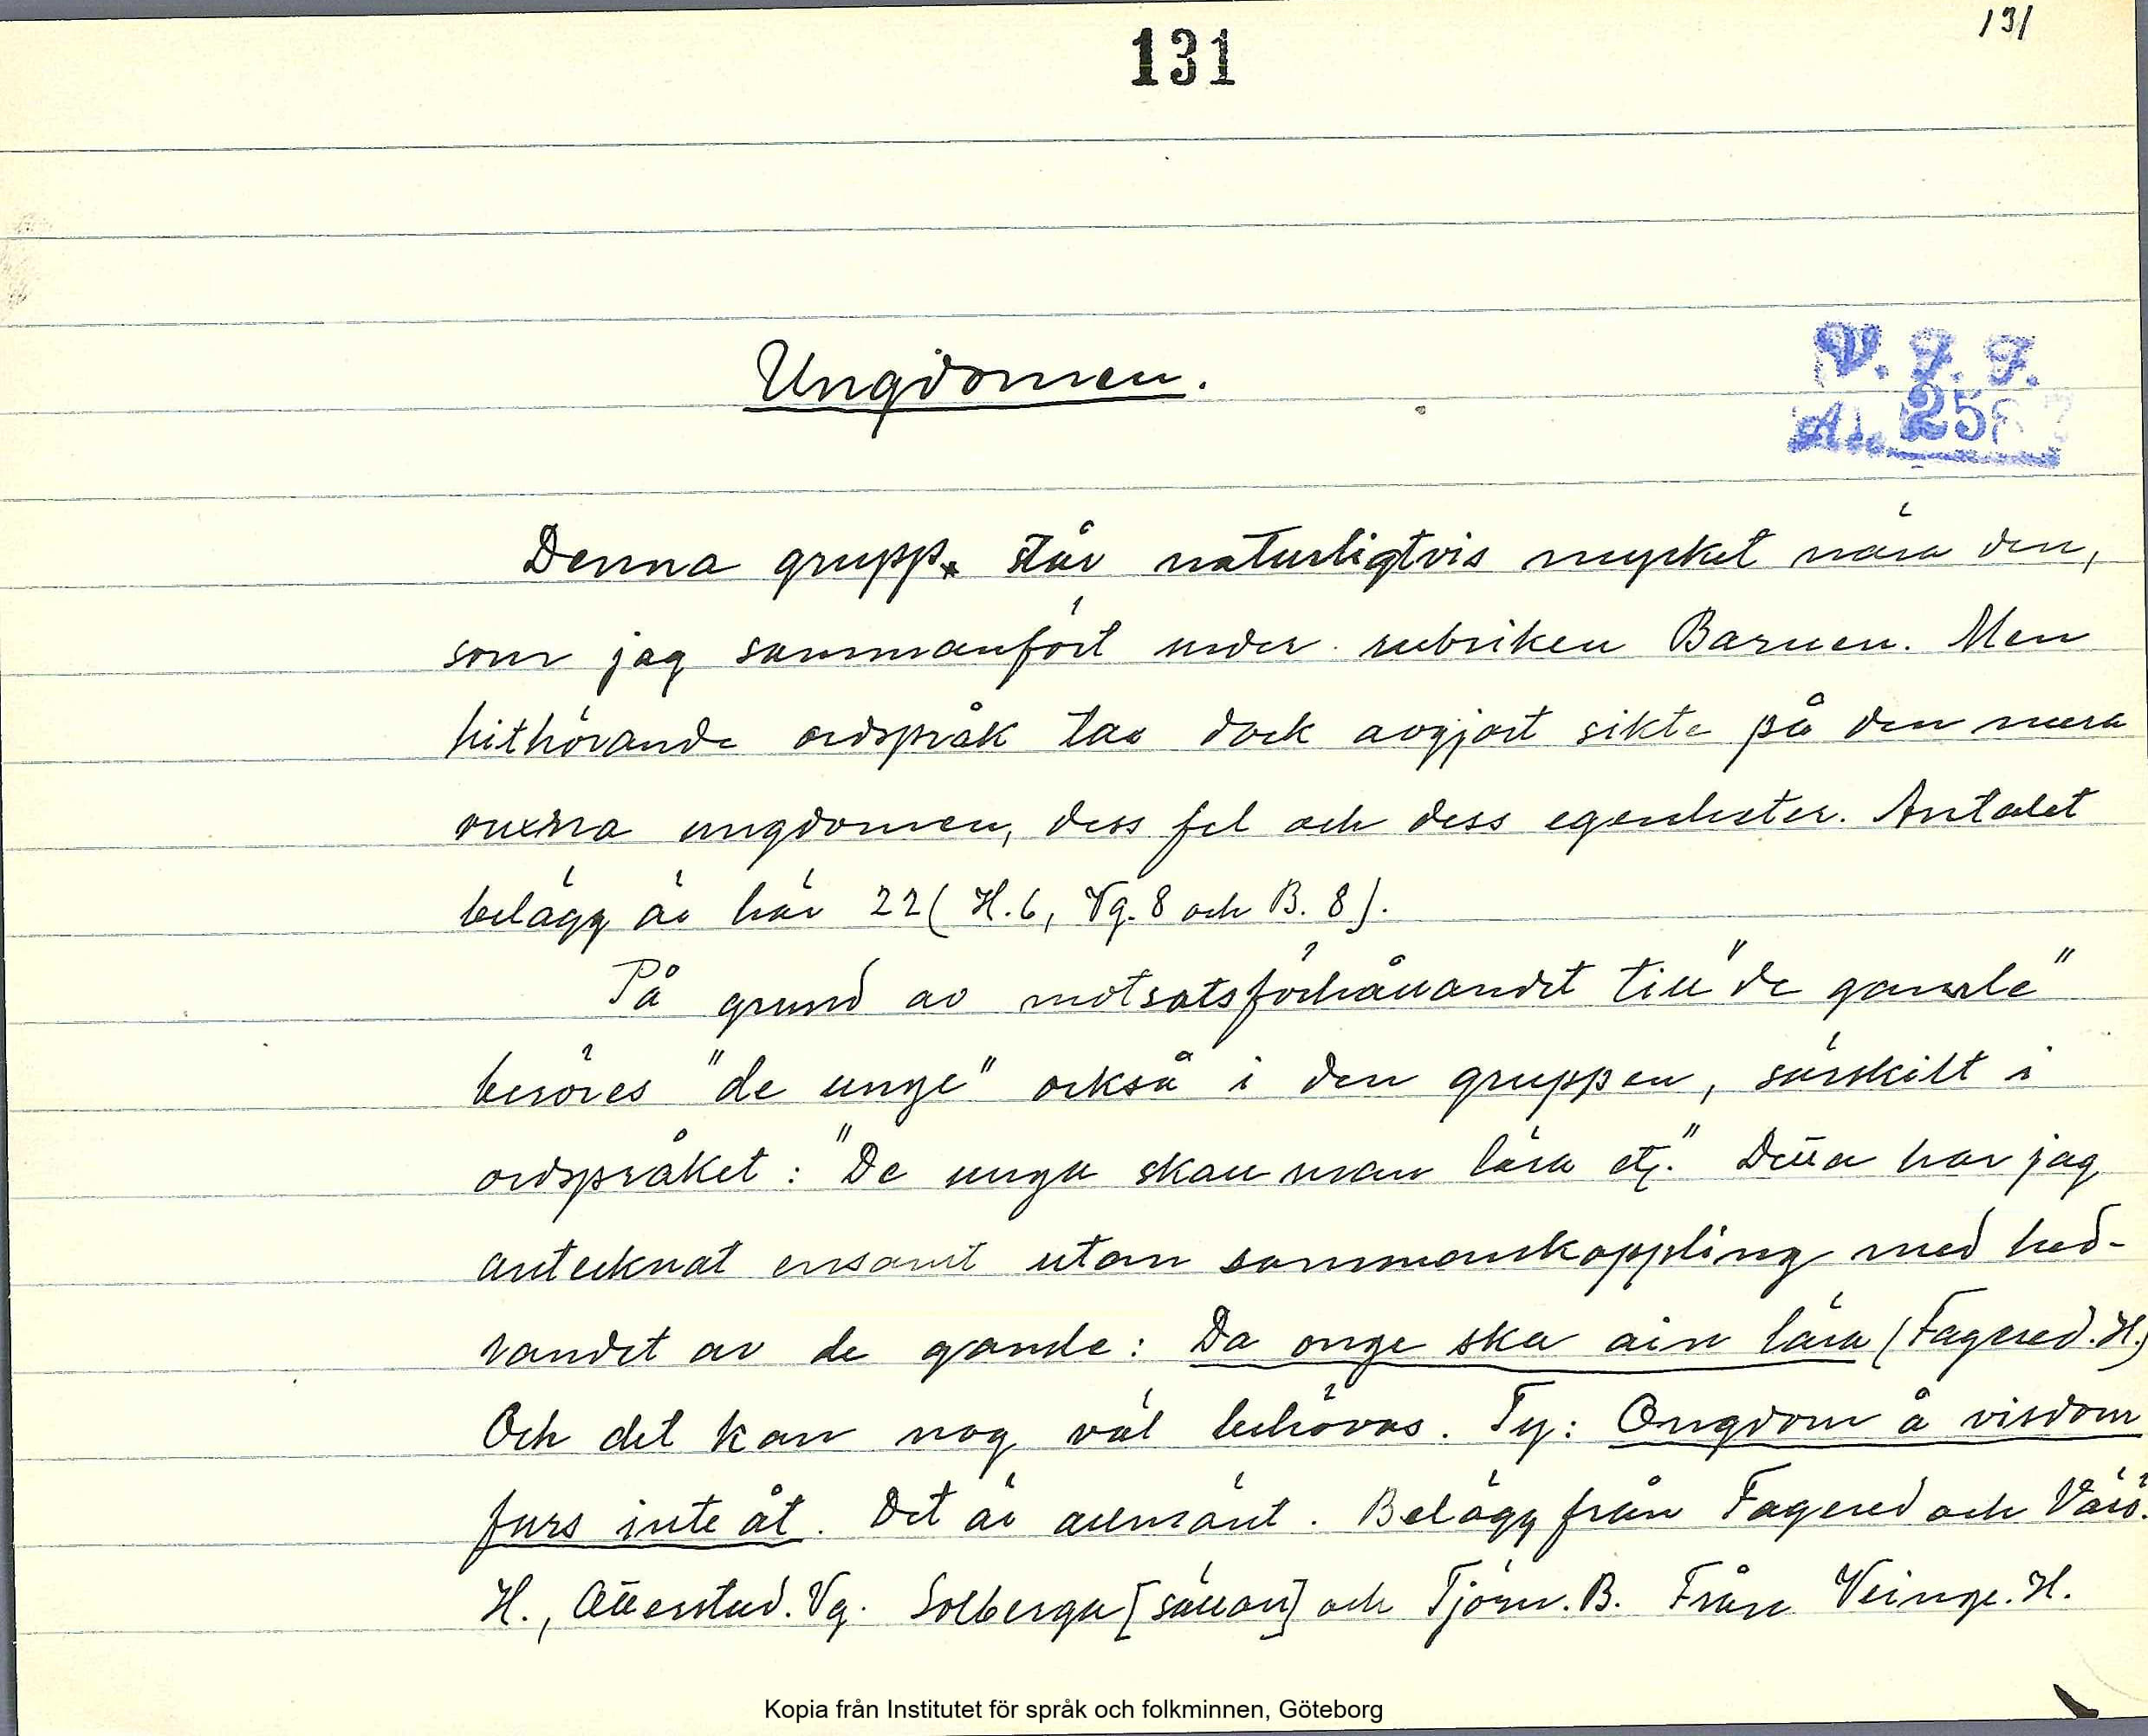 131
131
Ungdomen.
V. F. F.
Denna grupp står naturligtvis mycket nära den,
som jag sammanfört under rubriken Barnen. Men
hithörande ordspråk tar dock avgjort sikte på den mera
vuxna ungdomen, dess fel och dess egenheter. Antalet
belägg är här 22 (H. 6, Vg. 8 och B. 8).
På grund av motsatsförhållandet till "de gamle"
beröres "de unge" också i den gruppen, särskilt i
ordspråket: "De unga skall man lära etc." Detta har jag
antecknat ensamt utan sammankoppling med hed-
randet av de gamle: Da onge ska ain lära (Fagered. H.)
Och det kan nog väl behövas. Ty: Ongdom å visdom
furs inte åt. Det är allmänt. Belägg från Fagered och Värö.
H., Otterstad. Vg. Solberga [sällan] och Tjörn. B. Från Veinge. H.
Kopia från Institutet för språk och folkminnen, Göteborg